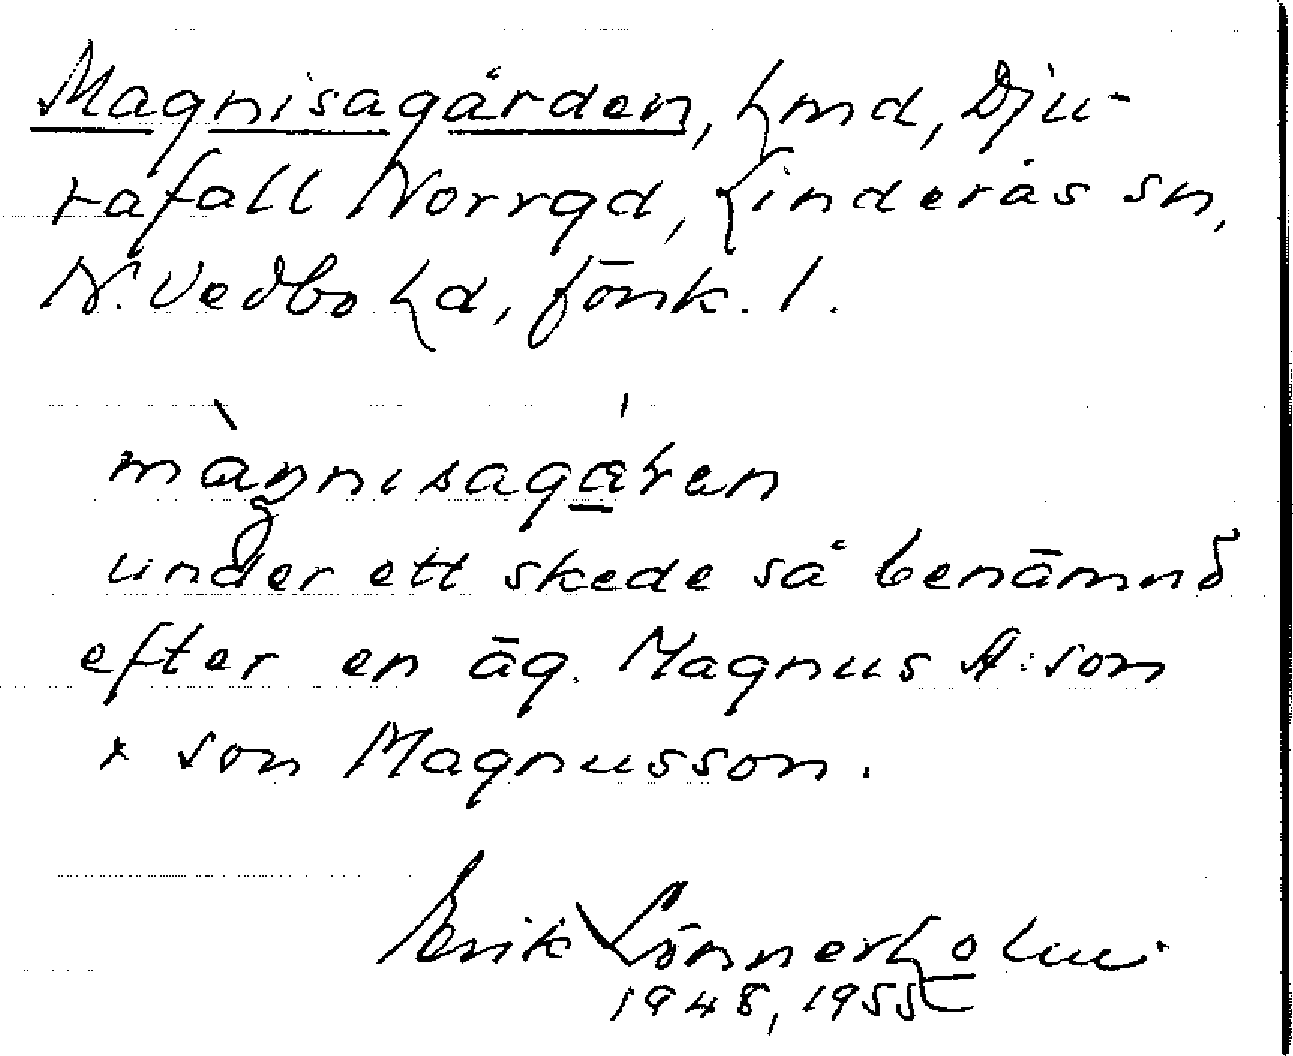 Magnisagården, hmd, Dju-
rafall Norrgd, Linderås sn,
N. Vedbo hd, fönk. 1.
màŋnisagá̱ren
under ett skede så benämnd
efter en äg. Magnus A:son
x son Magnusson.
Erik Lönnerholm
1948, 1955